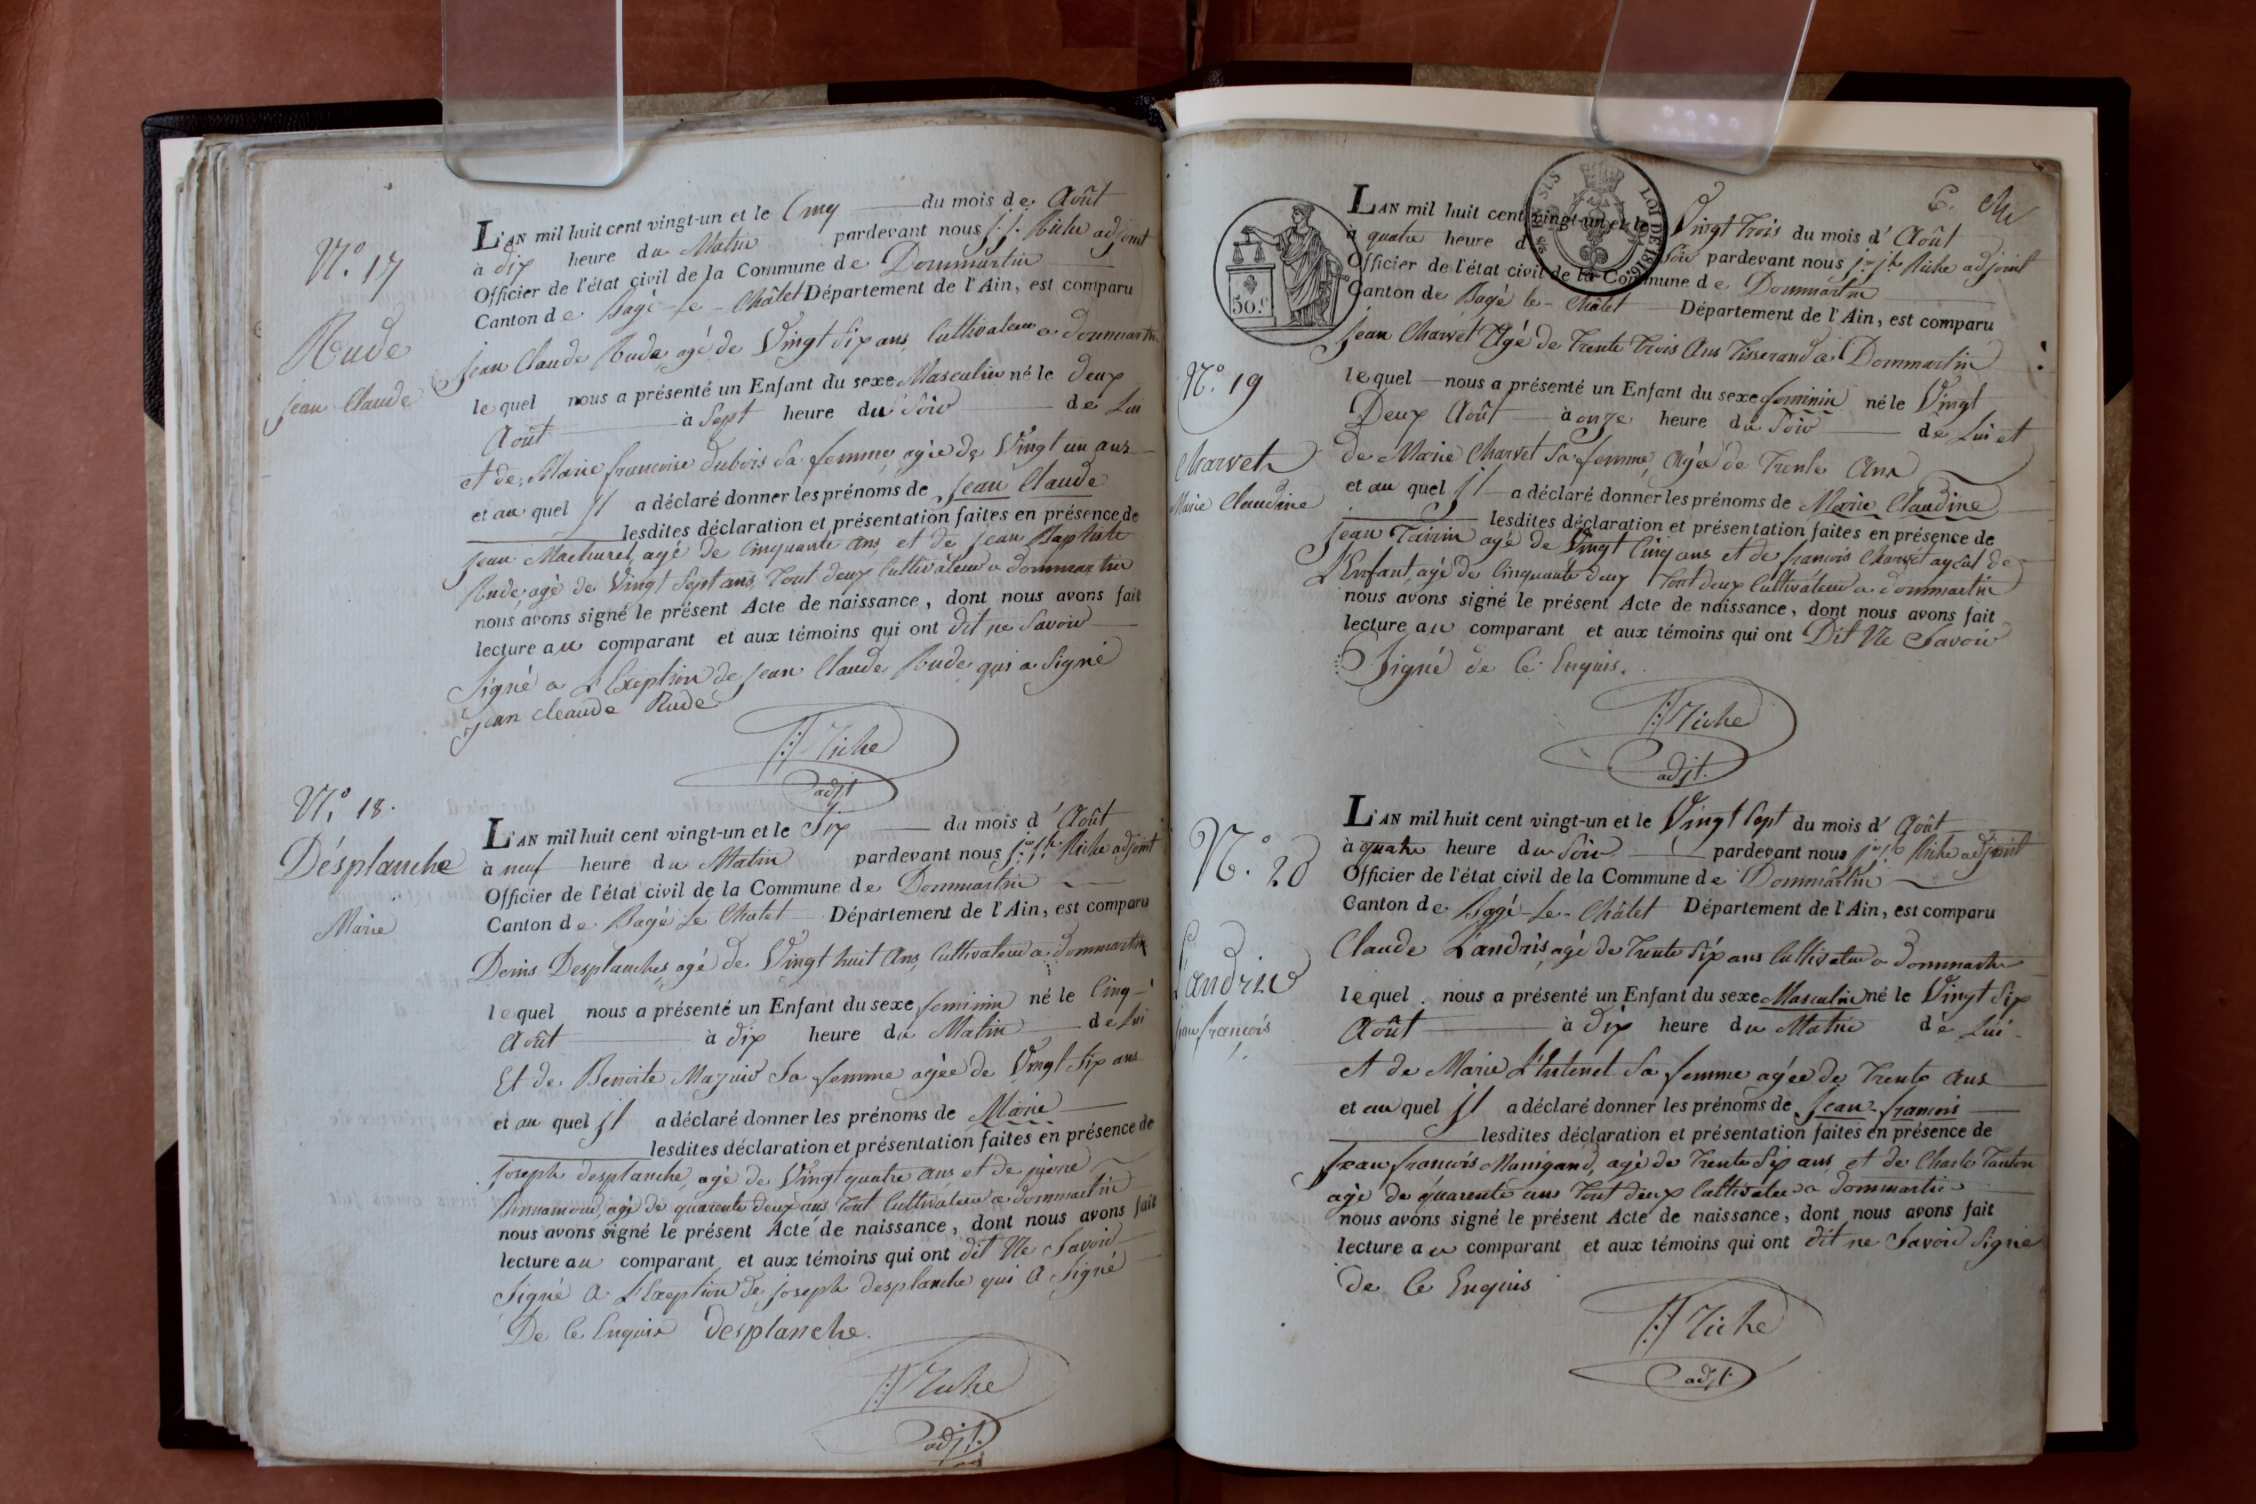 N.° 17
Rude
jean Claude
L'AN mil huit cent vingt-un et le Cinq du mois de Août
à dix heure du Matin pardevant nous j: j. Riche adjoint
Officier de l'état civil de la Commune de Dommartin
Canton de Bagé-Le-Châtel Département de l'Ain, est comparu
jean Claude Rude agé de Vingt Six ans, Cultivateur a dommartin
lequel nous a présenté un Enfant du sexe Masculin né le deux
Août à Sept heure du Soir de Lui
et de Marie francoise dubois Sa femme agée de Vingt un ans
et au quel jl a déclaré donner les prénoms de jean Claude
lesdites déclaration et présentation faites en présence de
jean Machurel, agé de Cinquante ans, et de jean Baptiste
Rude, agé de Vingt Sept ans, tout deux Cultivateur a dommartin
nous avons signé le présent Acte de naissance, dont nous avons fait
lecture au comparant et aux témoins qui ont dit ne Savoir
Signé a L'Exeption de jean Claude Rude qui a Signé
jean cleaude Rude
Riche
adjt
N.° 18.
Désplanche
Marie
L'AN mil huit cent vingt-un et le Six du mois d' Août
à neuf heure du Matin pardevant nous j.n j.h Riche adjoint
Officier de l'état civil de la Commune de Dommartin
Canton de Bagé Le Chatel Département de l'Ain, est comparu
Denis Desplanches, agé de Vingt huit Ans, Cultivateur a dommartin
lequel nous a présenté un Enfant du sexe feminin né le Cinq
Août à dix heure du Matin de Lui
Et de Benoite Mazuir Sa femme agée de Vingt Six ans
et au quel jl a déclaré donner les prénoms de Marie
lesdites déclaration et présentation faites en présence de
joseph desplanche, agé de Vingt quatre ans, et de pierre
agé de quarente deux ans, tout Cultivateur a dommartin
nous avons signé le présent Acte de naissance, dont nous avons fait
lecture au comparant et aux témoins qui ont dit Ne Savoir
Signé a L'Exeption de joseph desplanche qui a Signé
De Ce Enquis desplanche.
Riche
adjt.
50.c
LOI DE 1816
N.° 19
Charvet
Marie Claudine
L'AN mil huit cent vingt-un et le Vingt trois du mois d' Août
à quatre heure du Soir pardevant nous j.n j.h Riche adjoint
Officier de l'état civil de la Commune de Dommartin
Canton de Bagé le-Châtel Département de l'Ain, est comparu
jean Charvet Agé de Trente trois Ans Tisserand a Dommartin
lequel nous a présenté un Enfant du sexe feminin né le Vingt
Deux Août à onze heure du Soir de Lui et
de Marie Charvet Sa femme, Agée de Trente Ans
et au quel jl a déclaré donner les prénoms de Marie Claudine
lesdites déclaration et présentation faites en présence de
jean Tavin agé de Vingt Cinq ans et de francois Charvet ayeul de
L'Enfant, agé de Cinquante deux tout deux Cultivateur a dommartin
nous avons signé le présent Acte de naissance, dont nous avons fait
lecture au comparant et aux témoins qui ont Dit Ne Savoir
Signé de Ce Enquis.
Riche
adjt.
N.° 20
Landris
jean francois
L'AN mil huit cent vingt-un et le Vingt Sept du mois d' Août
à quatre heure du Soir pardevant nous j.n j.h Riche adjoint
Officier de l'état civil de la Commune de Dommartin
Canton de Bagé-Le-Châtel Département de l'Ain, est comparu
Claude Landris, agé de Trente Six ans Cultivateur a Dommartin
lequel nous a présenté un Enfant du sexe Masculin né le Vingt Six
Août à Dix heure du Matin de Lui
et de Marie Sa femme agée de Trente ans
et au quel jl a déclaré donner les prénoms de jean francois
lesdites déclaration et présentation faites en présence de
jean francois Manigand, agé de Trente Six ans, et de Charle Tanton
agé de quarente ans tout deux Cultivateur a dommartin
nous avons signé le présent Acte de naissance, dont nous avons fait
lecture au comparant et aux témoins qui ont dit ne Savoir Signé
de Ce Enquis
Riche
adjt.